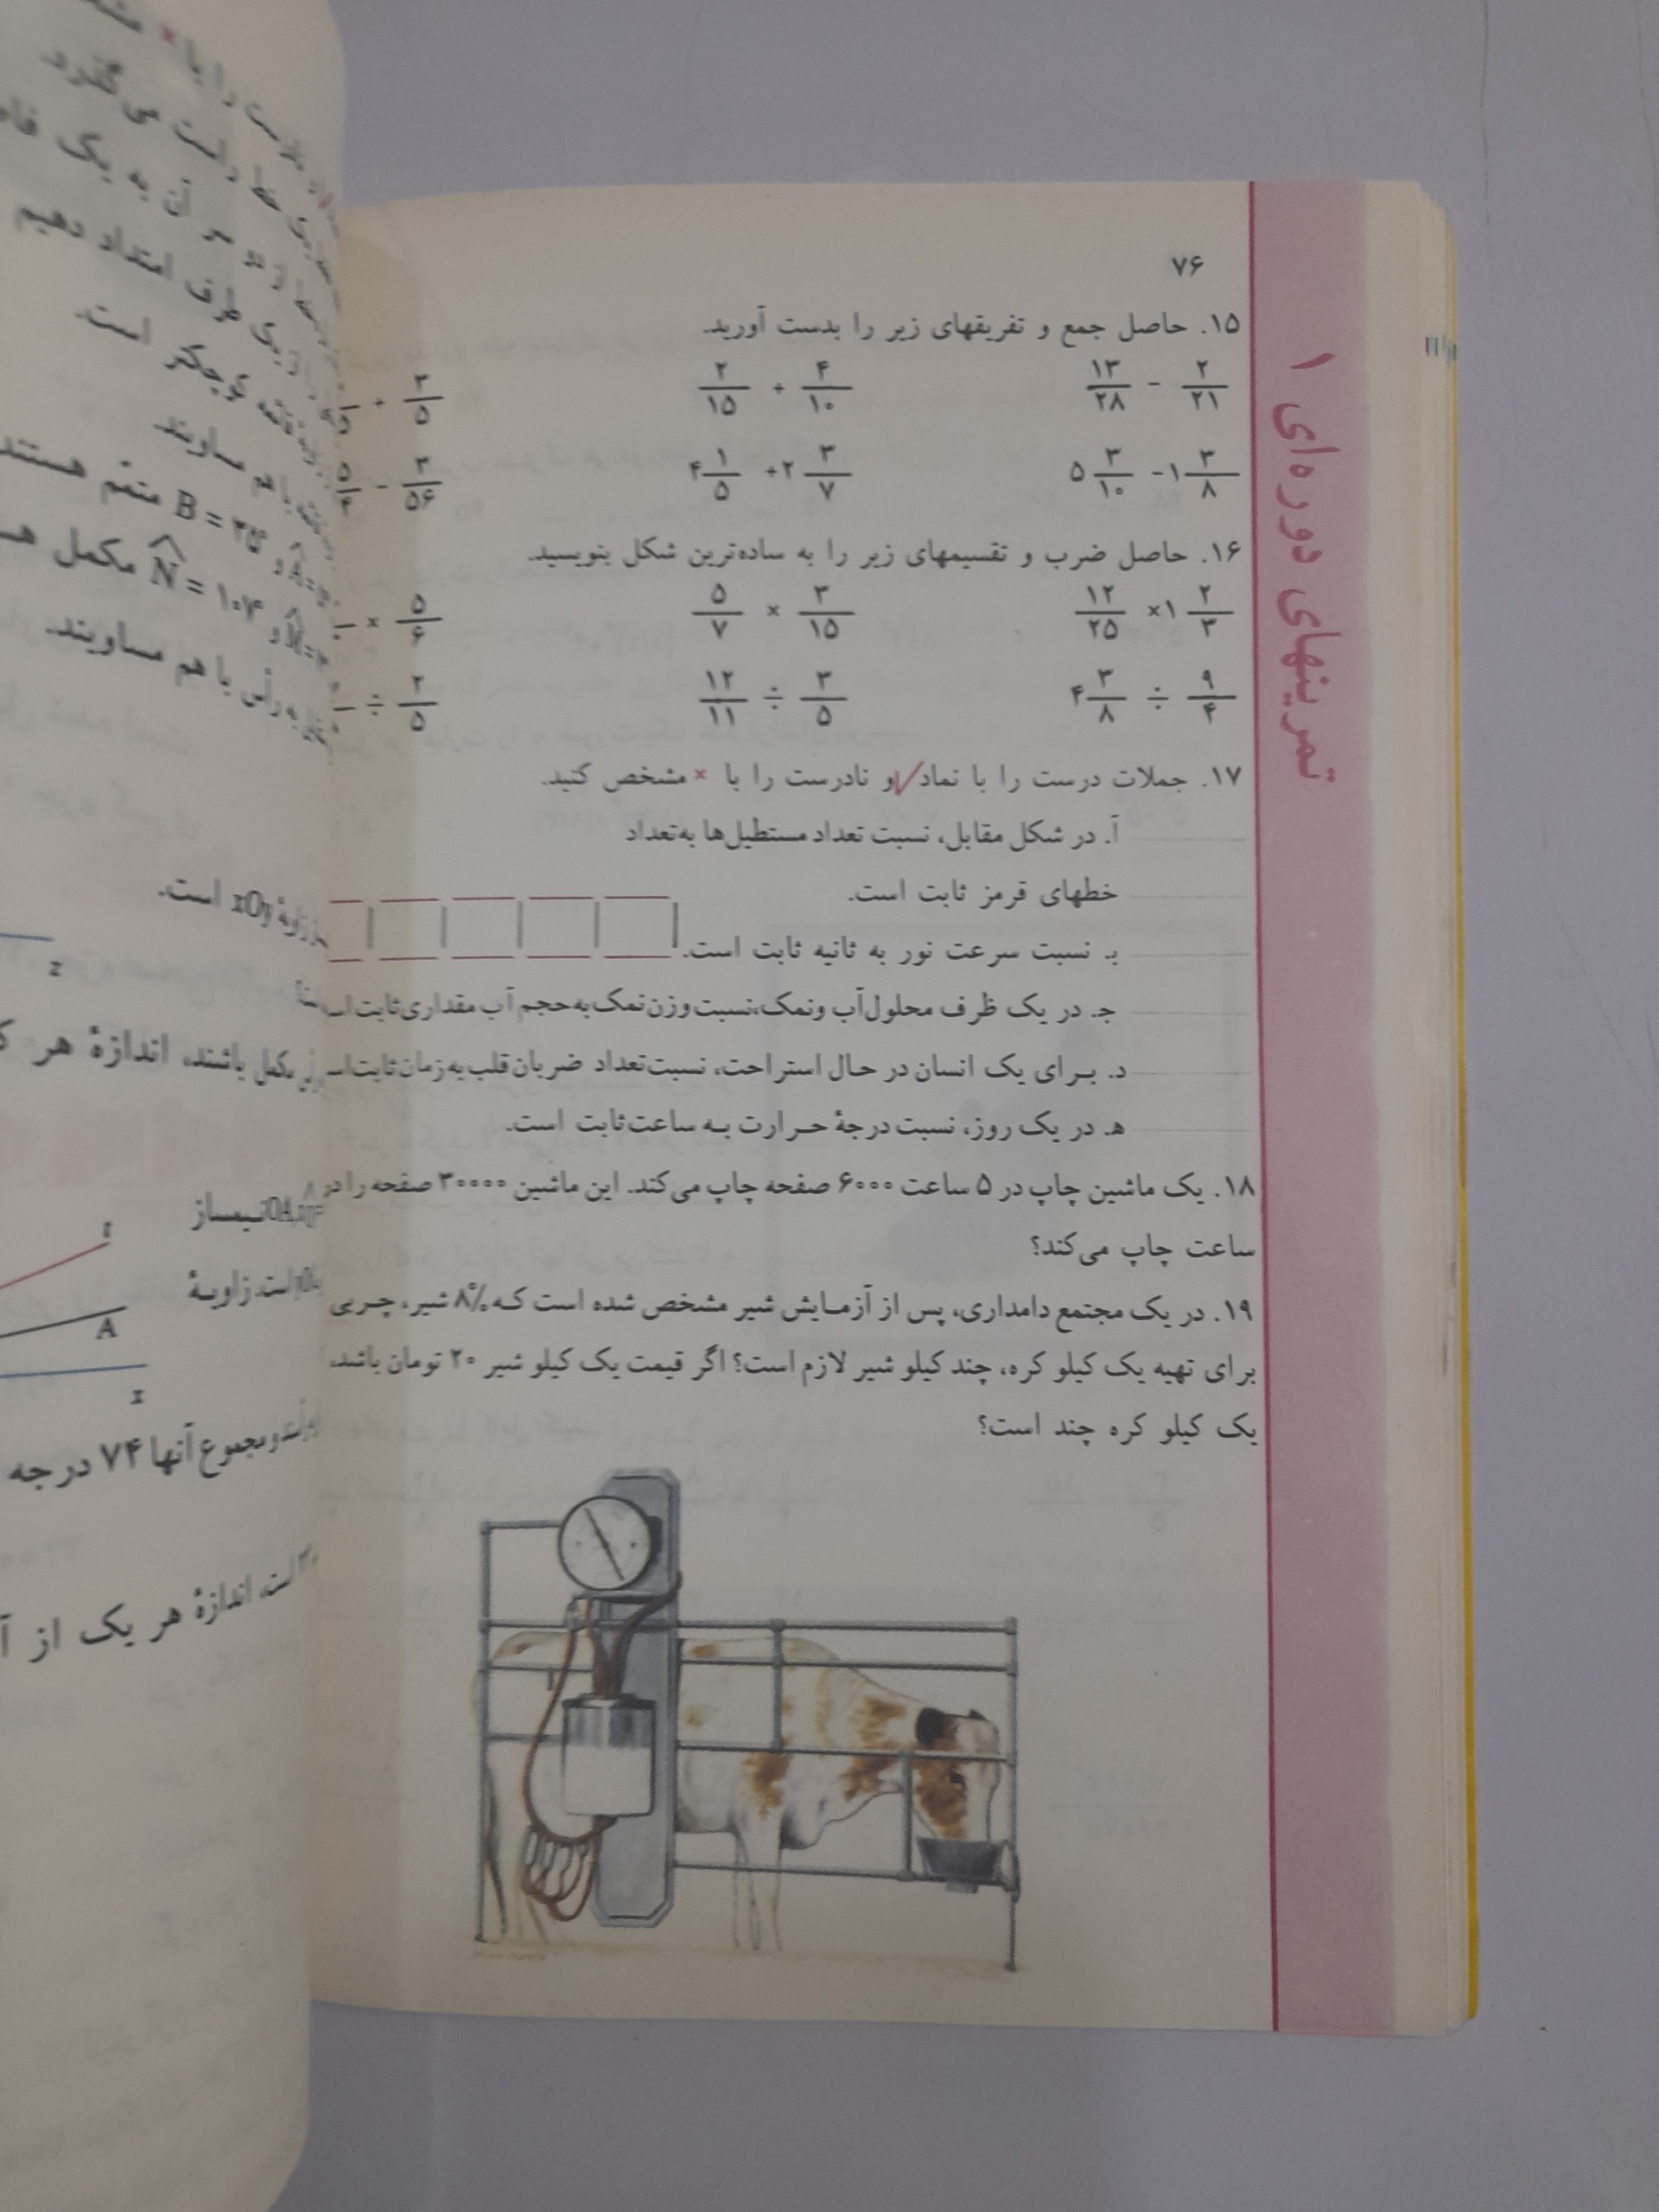 ۷۶
تمرینهای دوره‌ای ۱
۱۵. حاصل جمع و تفریقهای زیر را بدست آورید.
۱۳/۲۸ - ۲/۲۱    ۲/۱۵ + ۴/۱۰    + ۳/۵
۵ ۳/۱۰ - ۱ ۳/۸    ۴ ۱/۵ + ۲ ۳/۷    - ۳/۵۶
۱۶. حاصل ضرب و تقسیمهای زیر را به ساده‌ترین شکل بنویسید.
۱۲/۲۵ × ۱ ۲/۳    ۵/۷ × ۳/۱۵    × ۵/۶
۴ ۳/۸ ÷ ۹/۴    ۱۲/۱۱ ÷ ۳/۵    ÷ ۲/۵
۱۷. جملات درست را با نماد ✓ و نادرست را با × مشخص کنید.
آ. در شکل مقابل، نسبت تعداد مستطیل‌ها به تعداد
خطهای قرمز ثابت است.
بـ نسبت سرعت نور به ثانیه ثابت است.
جـ در یک ظرف محلول آب و نمک، نسبت وزن نمک به حجم آب مقداری ثابت
د. بـرای یک انسان در حـال استراحت، نسبت تعداد ضربان قلب به زمان ثابت
هـ در یک روز، نسبت درجهٔ حـرارت بـه ساعت ثابت است.
۱۸. یک ماشین چاپ در ۵ ساعت ۶۰۰۰ صفحه چاپ می‌کند. این ماشین ۳۰۰۰۰ صفحه را در
ساعت چاپ می‌کند؟
۱۹. در یک مجتمع دامداری، پس از آزمـایش شیر مشخص شده است کـه ۸% شیر، چـربی
برای تهیه یک کیلو کره، چند کیلو شیر لازم است؟ اگر قیمت یک کیلو شیر ۲۰ تومان باشد،
یک کیلو کره چند است؟
را با ×
به یک
طرف امتداد دهیم
کوچکتر است.
با هم مساویند.
و B = ۳۵° متمم هستند
و N̂ = ۱۰۷° مکمل
به رأس با هم مساویند.
زاویهٔ xOy است.
z
مکمل باشند، اندازهٔ هر
نیمساز
t
است زاویـهٔ
A
x
و مجموع آنها ۷۴ درجه
است. اندازهٔ هر یک از